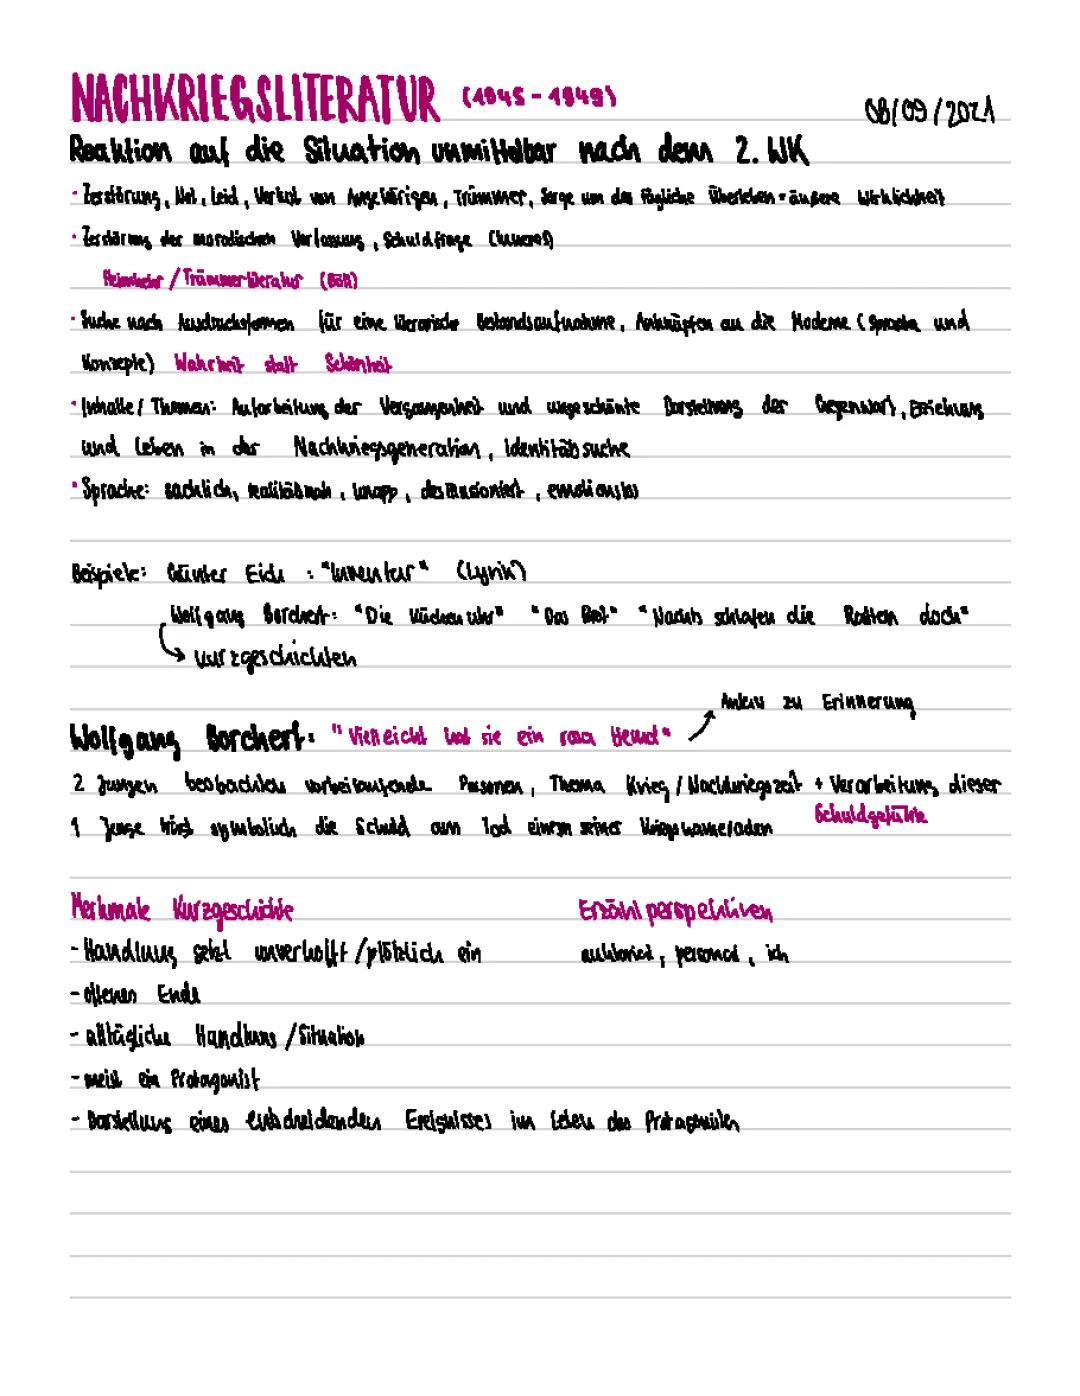 NACHKRIEGSLITERATUR (1945-1949) 08/09/2021
Reaktion auf die Situation unmittelbar nach dem 2. WK
· Zerstörung, Not, Leid, Verlust von Angehörigen, Trümmer, Sorge um das tägliche Überleben = äußere Wirklichkeit
· Zerstörung der moralischen Verfassung, Schuldfrage (Inneres)
Heimkehr / Trümmerliteratur (Böll)
· Suche nach Ausdrucksformen für eine literarische Bestandsaufnahme, Anknüpfen an die Moderne (Sprache und
Konzepte) Wahrheit statt Schönheit
· Inhalte / Themen: Aufarbeitung der Vergangenheit und ungeschönte Darstellung der Gegenwart, Erziehung
und Leben in der Nachkriegsgeneration, Identitätssuche
· Sprache: sachlich, realitätsnah, knapp, desillusioniert, emotionslos
Beispiele: Günter Eich : "Inventur" (Lyrik)
Wolfgang Borchert: "Die Küchenuhr" "Das Brot" "Nachts schlafen die Ratten doch"
Kurzgeschichten
Anker zu Erinnerung
Wolfgang Borchert: "Vielleicht hat sie ein rosa Hemd"
2 Jungen beobachten vorbeilaufende Personen, Thema Krieg / Nachkriegszeit + Verarbeitung dieser
1 Junge trägt symbolisch die Schuld am Tod einem seiner Kriegskameraden Schuldgefühle
Merkmale Kurzgeschichte Erzählperspektiven
- Handlung setzt unverhofft / plötzlich ein auktorial, personal, ich
- offenes Ende
- alltägliche Handlung / Situation
- meist ein Protagonist
- Darstellung eines entscheidenden Ereignisses im Leben des Protagonisten